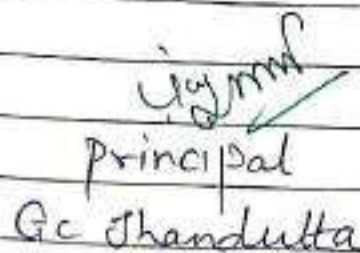 Principal
Gc Jhandutta